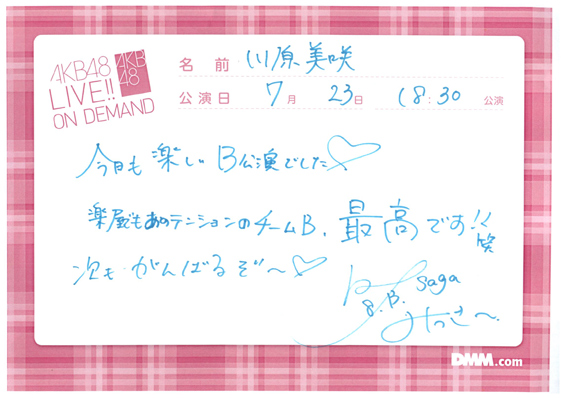 AKB48
LIVE!!
ON DEMAND
AKB
48
名前 川原美咲
公演日 7月 23日 18:30 公演
今日も楽しいB公演でした♡
楽屋でもあのテンションのチームB、最高です!!笑
次も がんばるぞ〜♡
8.B. Saga
みっさ〜.
DMM.com